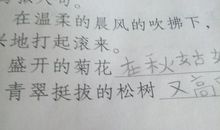 在温柔的晨风的吹拂下,
地打起滚来。
盛开的菊花 在秋姑姑
青翠挺拔的松树 又高